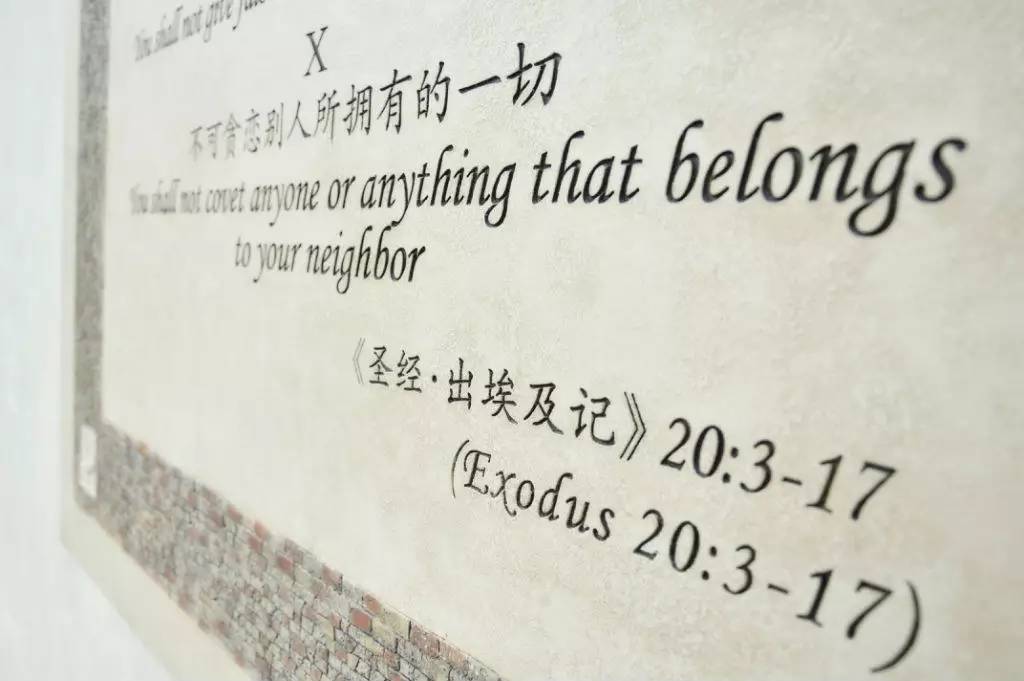 You shall not give false
X
不可贪恋别人所拥有的一切
You shall not covet anyone or anything that belongs
to your neighbor
《圣经·出埃及记》20:3-17
(Exodus 20:3-17)